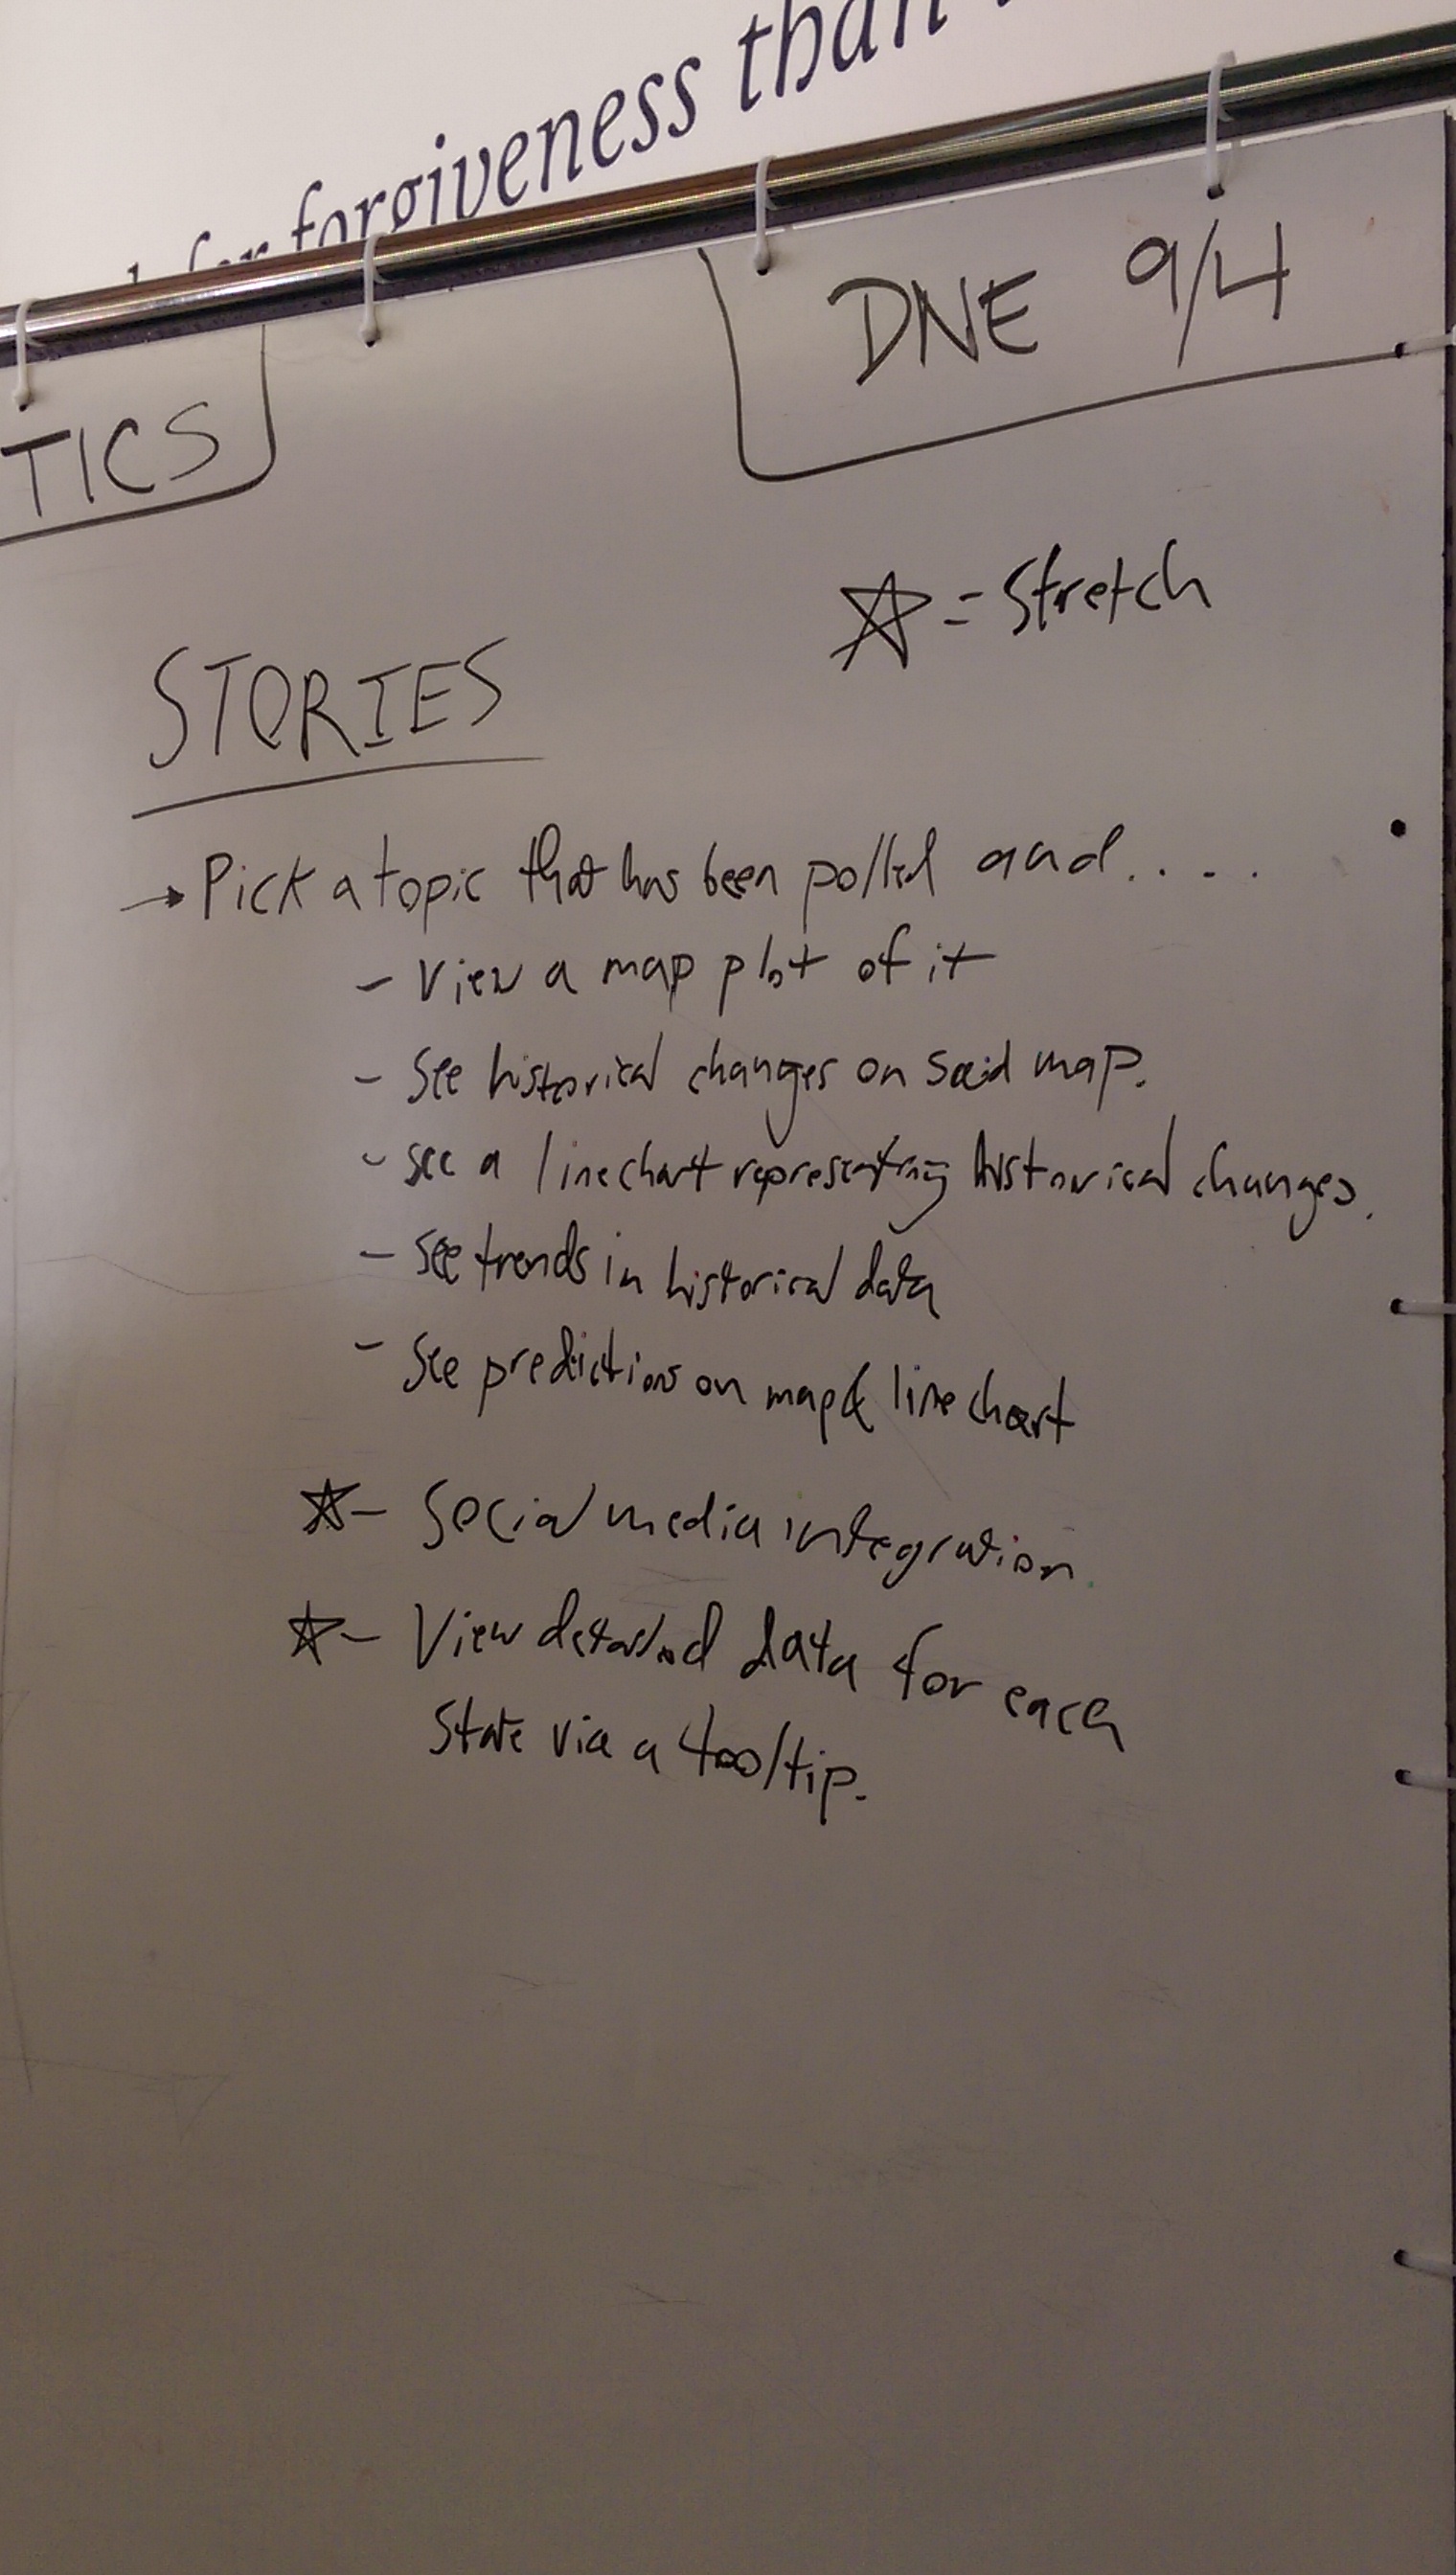 for forgiveness than
TICS
DNE 9/4
☆ = Stretch
STORIES
→ Pick a topic that has been polled and....
- View a map plot of it
- See historical changes on said map.
- see a linechart representing historical changes.
- See trends in historical data
- See predictions on map & line chart
☆- Social media integration.
☆- View detailed data for each
State via a tooltip.